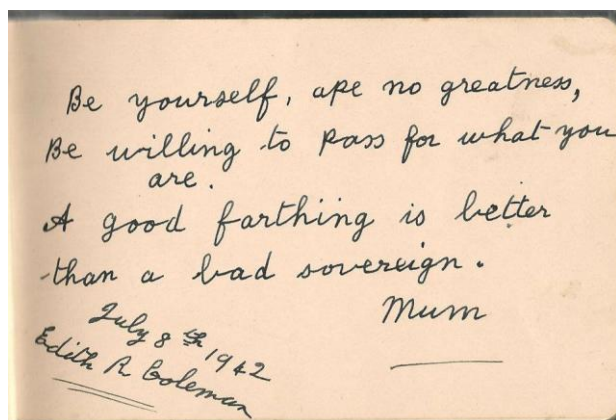 Be yourself, ape no greatness,
Be willing to pass for what you
are.
A good farthing is better
than a bad sovereign.
Mum
July 8th 1942
Edith R Coleman